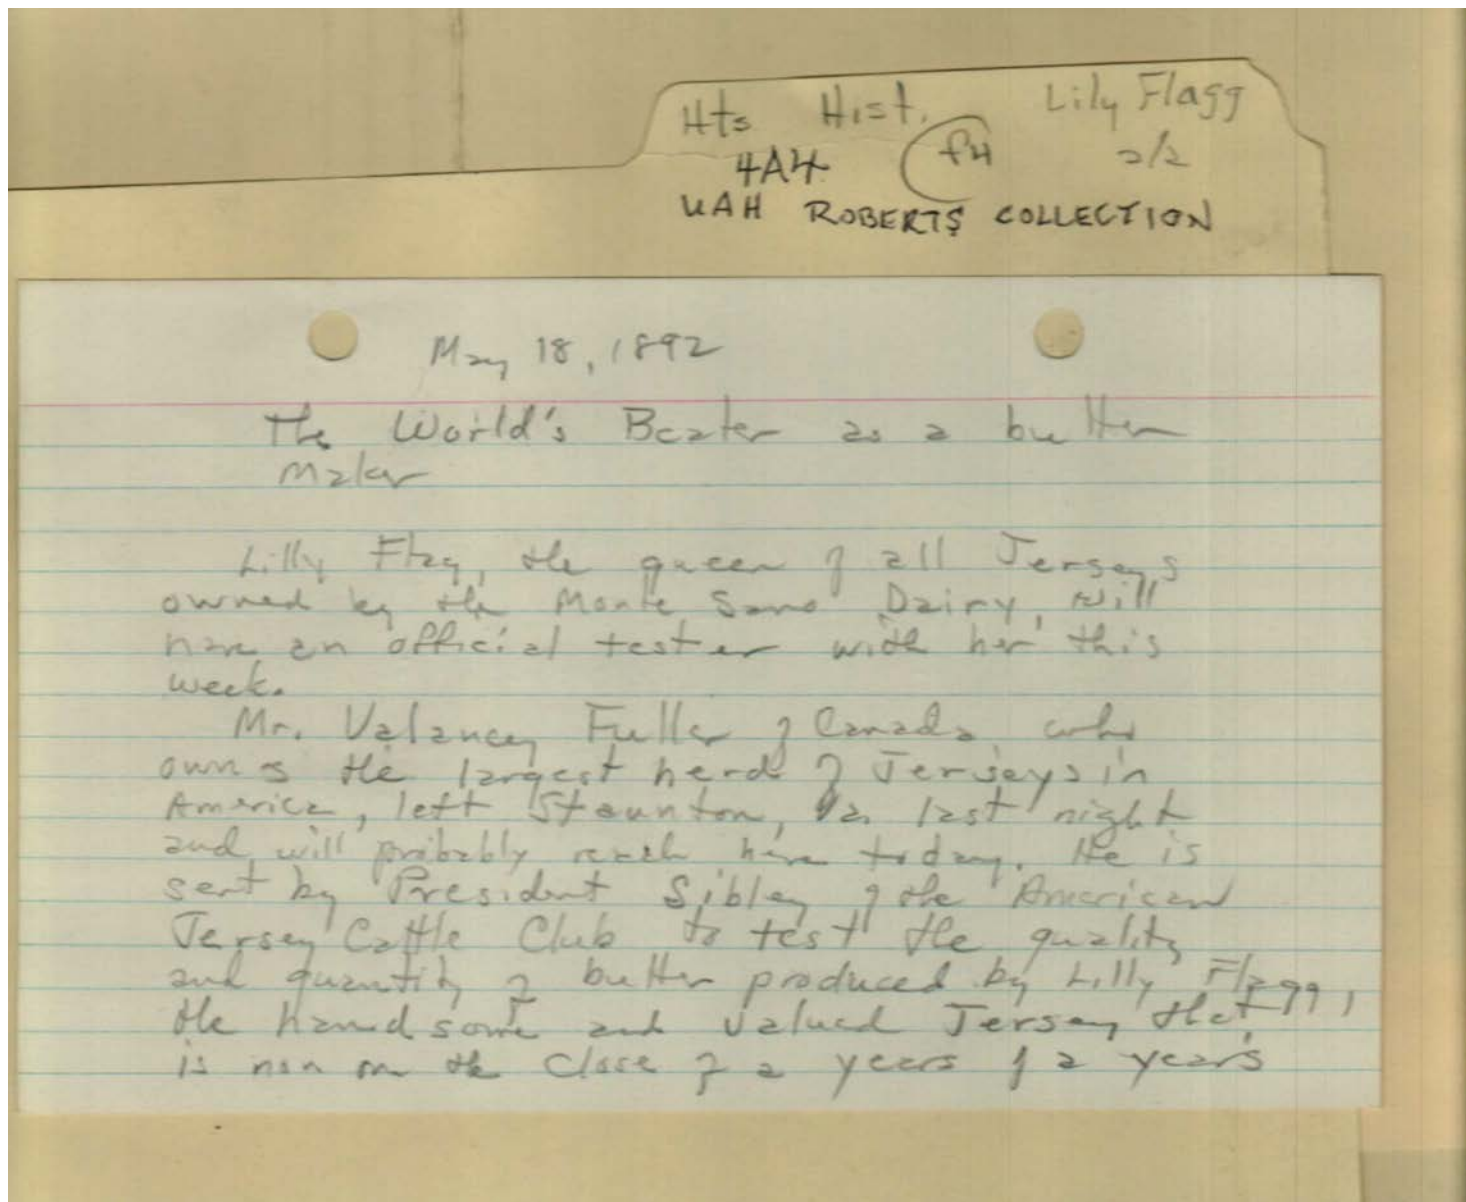 Hts Hist. Lily Flagg
4A4 f4 2/2
UAH ROBERTS COLLECTION
May 18, 1892
The World's Beater as a butter
maker
Lilly Flag, the queen of all Jerseys
owned by the Monte Sano Dairy, will
have an official tester with her this
week.
Mr. Valancey Fuller of Canada, who
owns the largest herd of Jerseys in
America, left Staunton, Va last night
and will probably reach here today. He is
sent by President Sibley of the American
Jersey Cattle Club to test the quality
and quantity of butter produced by Lilly Flagg,
the handsome and valued Jersey that
is now on the close of a years of a years